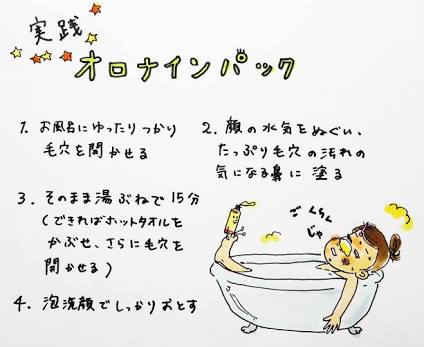 実践
オロナインパック
1. お風呂にゆったりつかり
毛穴を開かせる
2.顔の水気をぬぐい、
たっぷり毛穴の汚れの
気になる鼻に塗る
3. そのまま湯ぶねで15分
(できればホットタオルを
かぶせ、さらに毛穴を
開かせる)
4. 泡洗顔でしっかりおとす
ごくらく
じゃ